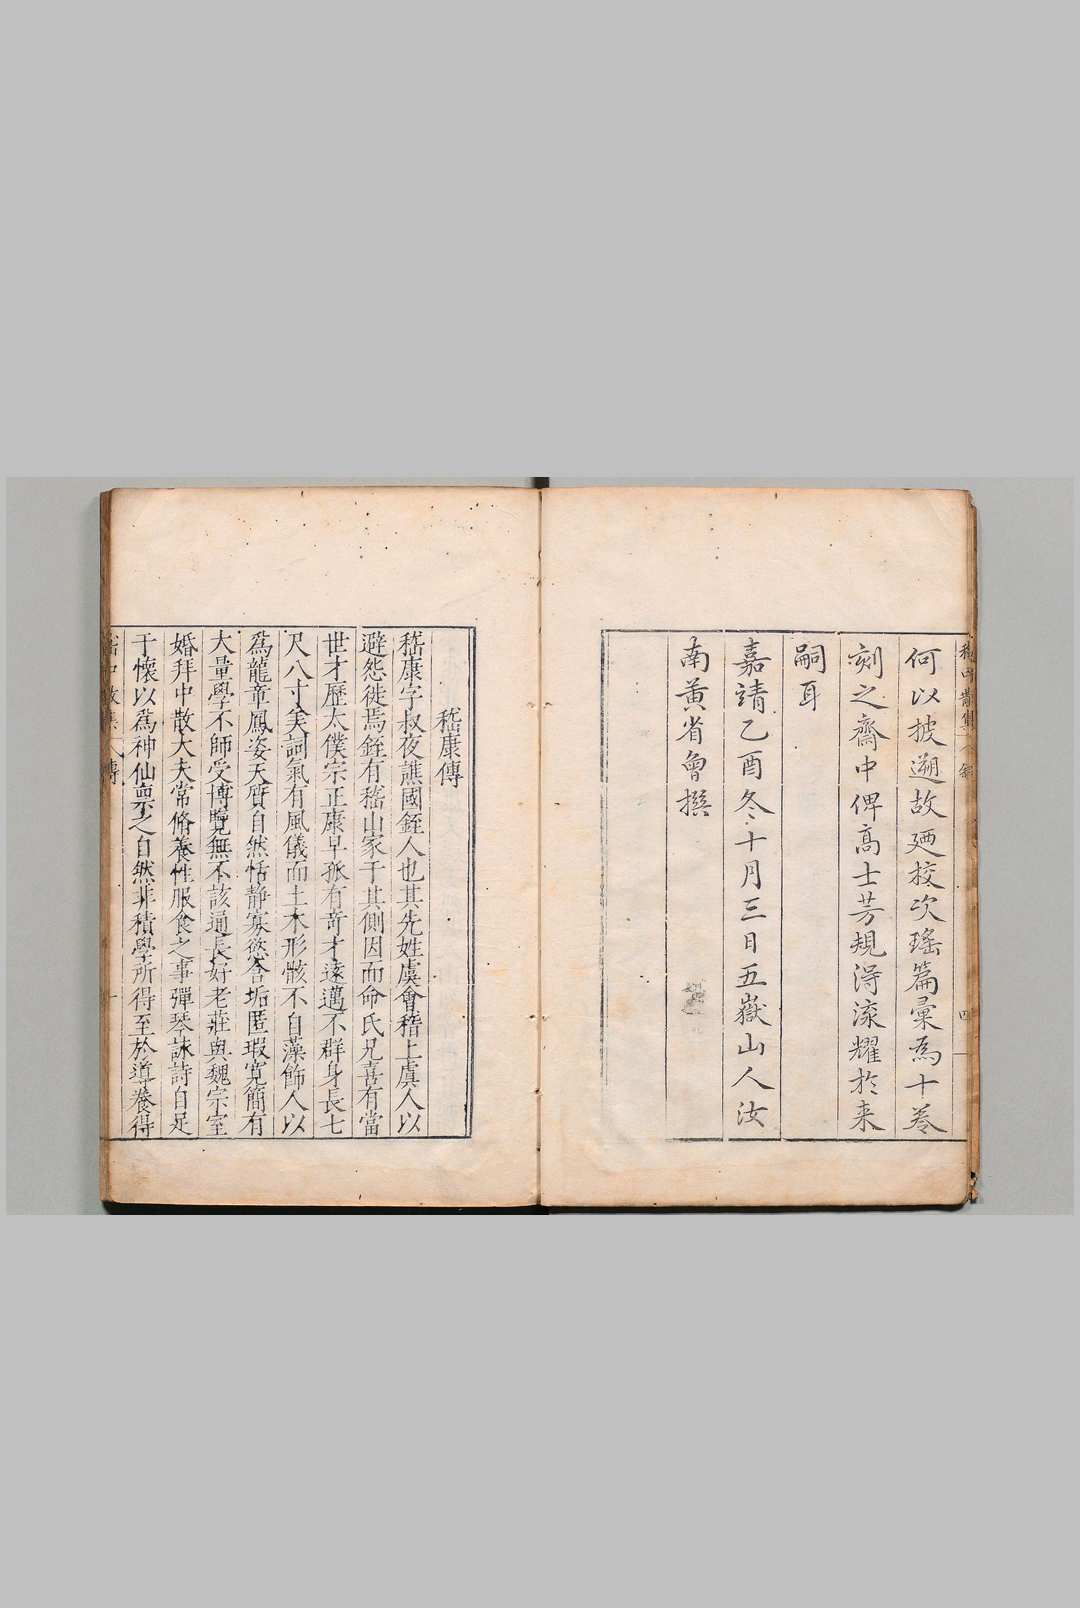 何以披遡故廼校次瑤篇彙為十卷
刻之齋中俾高士芳規得流耀於来
嗣耳
嘉靖乙酉冬十月三日五嶽山人汝
南黃省曾撰
嵇康傳
嵇康字叔夜譙國銍人也其先姓虞會稽上虞人以
避怨徙焉銍有嵇山家于其側因而命氏兄喜有當
世才歷太僕宗正康早孤有奇才遠邁不群身長七
尺八寸美詞氣有風儀而土木形骸不自藻飾人以
爲龍章鳳姿天質自然恬靜寡慾含垢匿瑕寬簡有
大量學不師受博覽無不該通長好老莊與魏宗室
婚拜中散大夫常脩養性服食之事彈琴詠詩自足
于懷以爲神仙稟之自然非積學所得至於導養得